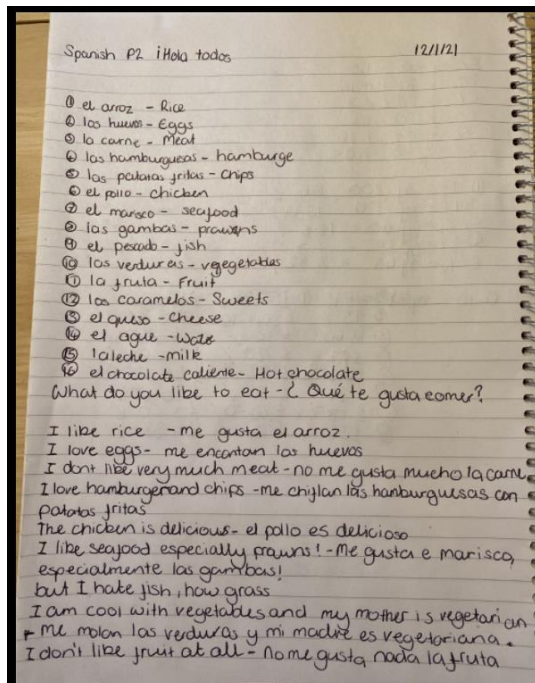 Spanish P2 ¡Hola todos 12/1/21
① el arroz - Rice
② los huevos - Eggs
③ la carne - Meat
④ las hamburgueas - hamburge
⑤ las patatas fritas - Chips
⑥ el pollo - chicken
⑦ el marisco - seafood
⑧ las gambas - prawns
⑨ el pescado - fish
⑩ las verduras - vegegetables
⑪ la fruta - Fruit
⑫ los caramelos - Sweets
⑬ el queso - Cheese
⑭ el ague -
⑮ la leche - milk
⑯ el chocolate caliente - Hot chocolate
What do you like to eat - ¿Qué te gusta comer?
I like rice - me gusta el arroz.
I love eggs - me encantan los huevos
I dont like very much meat - no me gusta mucho la carne
I love hamburgerand chips - me chiflan las hamburguesas con
patatas fritas
The chicken is delicious - el pollo es delicioso
I like seafood especially prawns! - Me gusta e marisco,
especialmente las gambas!
but I hate fish, how grass
I am cool with vegetables and my mother is vegetarian
- me molan las verduras y mi madre es vegetariana.
I don't like fruit at all - no me gusta nada la fruta